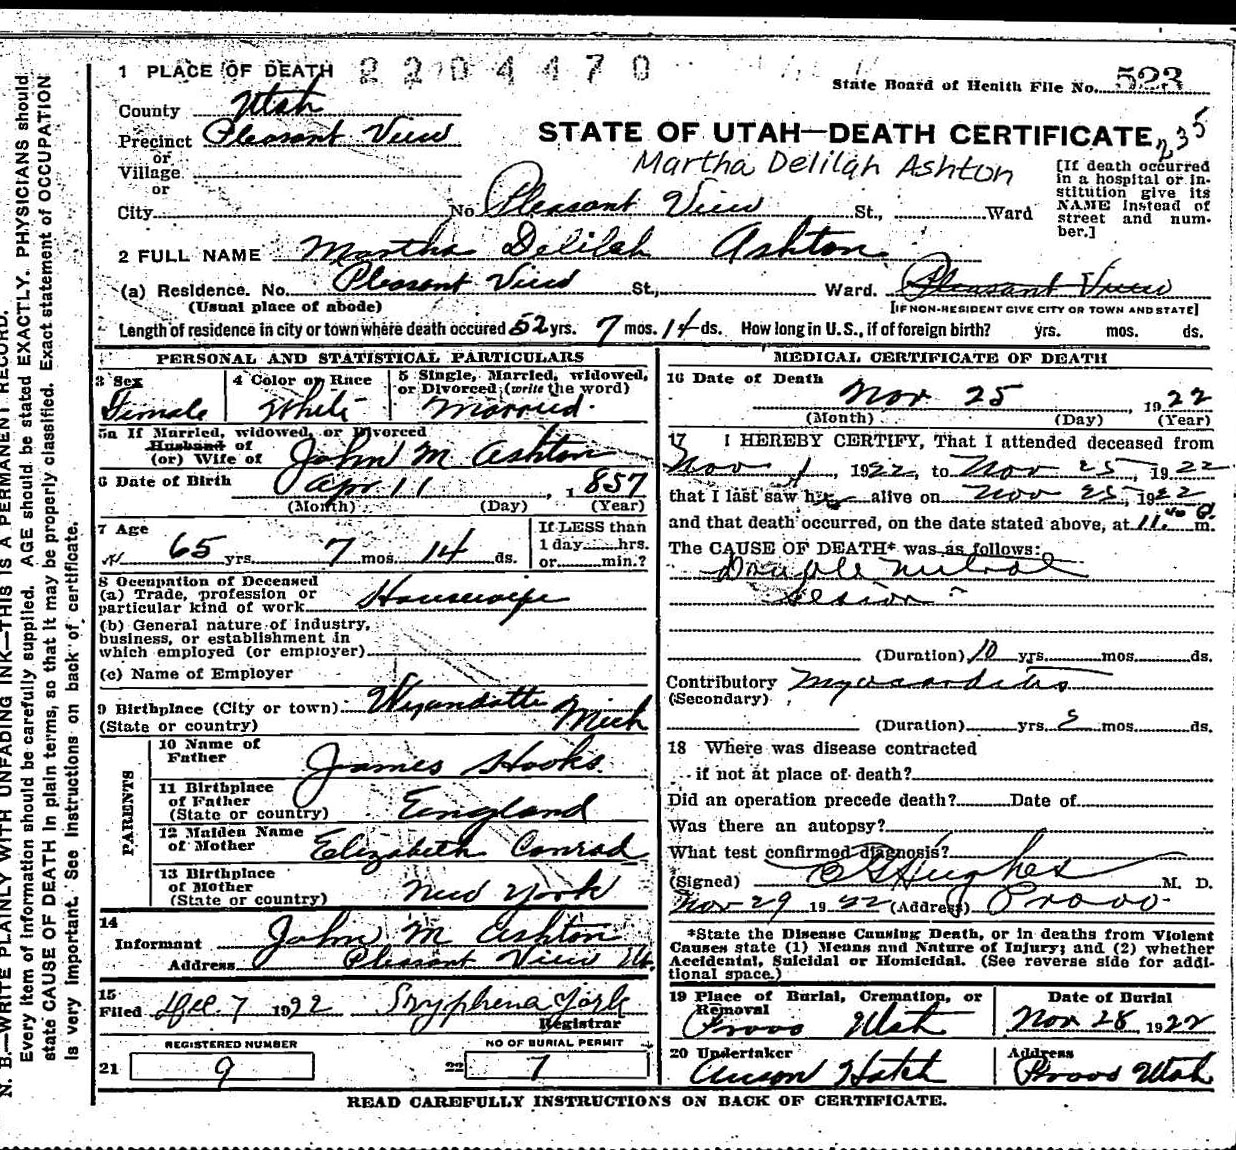 1 PLACE OF DEATH 2204470
State Board of Health File No. 523
County Utah
Precinct Pleasant View
or
Village
or
STATE OF UTAH—DEATH CERTIFICATE 235
Martha Delilah Ashton
[If death occurred in a hospital or institution give its NAME instead of street and number.]
City No Pleasant View St., Ward
2 FULL NAME Martha Delilah Ashton
(a) Residence. No. Pleasant View St., Ward. Pleasant View
(Usual place of abode) [IF NON-RESIDENT GIVE CITY OR TOWN AND STATE]
Length of residence in city or town where death occured 52 yrs. 7 mos. 14 ds. How long in U.S., if of foreign birth? yrs. mos. ds.
PERSONAL AND STATISTICAL PARTICULARS
3 Sex
Female
4 Color or Race
White
5 Single, Married, widowed, or Divorced (write the word)
Married.
5a If Married, widowed, or Divorced
Husband of
(or) Wife of John M Ashton
6 Date of Birth Apr 11, 1857
(Month) (Day) (Year)
7 Age
65 yrs. 7 mos. 14 ds.
If LESS than
1 day hrs.
or min.?
8 Occupation of Deceased
(a) Trade, profession or
particular kind of work Housewife
(b) General nature of industry,
business, or establishment in
which employed (or employer)
(c) Name of Employer
9 Birthplace (City or town) Wyandotte Mich
(State or country)
PARENTS
10 Name of
Father James Hooks.
11 Birthplace
of Father
(State or country) England
12 Maiden Name
of Mother Elizabeth Conrad
13 Birthplace
of Mother
(State or country) New York
14
Informant John M Ashton
Address Pleasant View Ut.
15
Filed Dec. 7 1922 Tryphena York
Registrar
REGISTERED NUMBER NO OF BURIAL PERMIT
21 9 22 7
MEDICAL CERTIFICATE OF DEATH
16 Date of Death
Nov 25, 1922
(Month) (Day) (Year)
17 I HEREBY CERTIFY, That I attended deceased from
Nov 1, 1922, to Nov 25, 1922
that I last saw her alive on Nov 25, 1922
and that death occurred, on the date stated above, at 11.40 m.
The CAUSE OF DEATH* was as follows:
Double mitral
lesion
(Duration) 10 yrs. mos. ds.
Contributory Myocarditis
(Secondary)
(Duration) yrs. 5 mos. ds.
18 Where was disease contracted
if not at place of death?
Did an operation precede death? Date of
Was there an autopsy?
What test confirmed diagnosis?
(Signed) Hughes M. D.
Nov 29 1922 (Address) Provo.
*State the Disease Causing Death, or in deaths from Violent
Causes state (1) Means and Nature of Injury; and (2) whether
Accidental, Suicidal or Homicidal. (See reverse side for addi-
tional space.)
19 Place of Burial, Cremation, or
Removal
Provo Utah
Date of Burial
Nov 28 1922
20 Undertaker
Anson Hatch
Address
Provo Utah
READ CAREFULLY INSTRUCTIONS ON BACK OF CERTIFICATE.
N. B.—WRITE PLAINLY WITH UNFADING INK—THIS IS A PERMANENT RECORD.
Every item of information should be carefully supplied. AGE should be stated EXACTLY. PHYSICIANS should
state CAUSE OF DEATH in plain terms, so that it may be properly classified. Exact statement of OCCUPATION
is very important. See instructions on back of certificate.